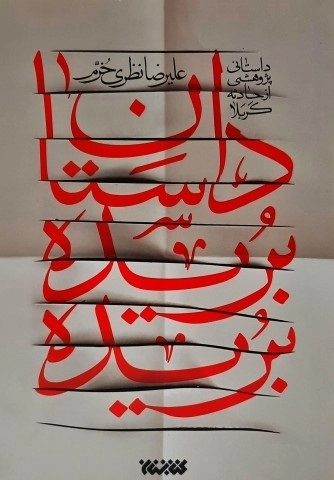 داستانی
پژوهشی
از حادثه
کربلا
علیرضا نظری خرّم
داستان
بُریده
بُریده